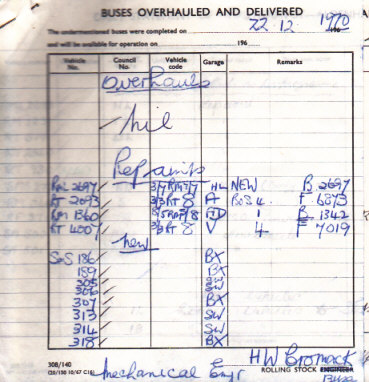 BUSES OVERHAULED AND DELIVERED
The undermentioned buses were completed on 22 12 1970 196
and will be available for operation on 196
Vehicle No. Council No. Vehicle code Garage Remarks
Overhauls
Nil
Repaints
RML 2697 HL NEW B 2697
RT 2093 3/3 RT 8 A BoS 4. F 6873
RM 1360 1 B 1342
RT 4007 3/3 RT 8 V 4 F 7019
New
SMS 186 BX
189 BX
305 SW
306 SW
307 BX
313 SW
314 SW
318 BX
308/140 HW Bromack
Mechanical Engr ROLLING STOCK ENGINEER